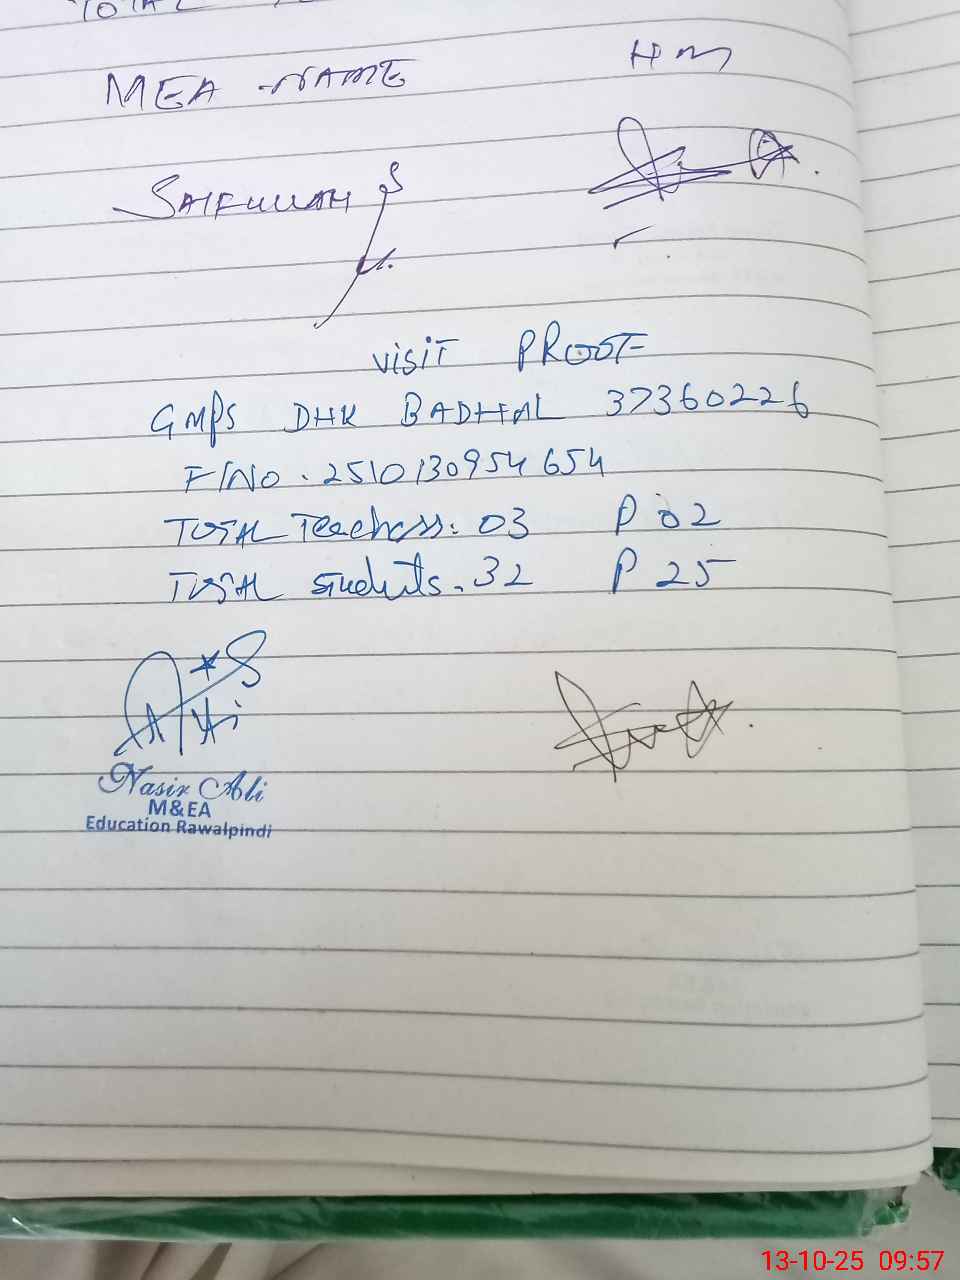 TOTAL
MEA NAME HM
SAIFULLAH
VISIT PROOF
GMPS DHK BADHAL 37360226
F/NO. 2510130954654
TOTAL Teachers: 03 P 02
TOTAL Students. 32 P 25
Nasir Ali
M&EA
Education Rawalpindi
13-10-25 09:57